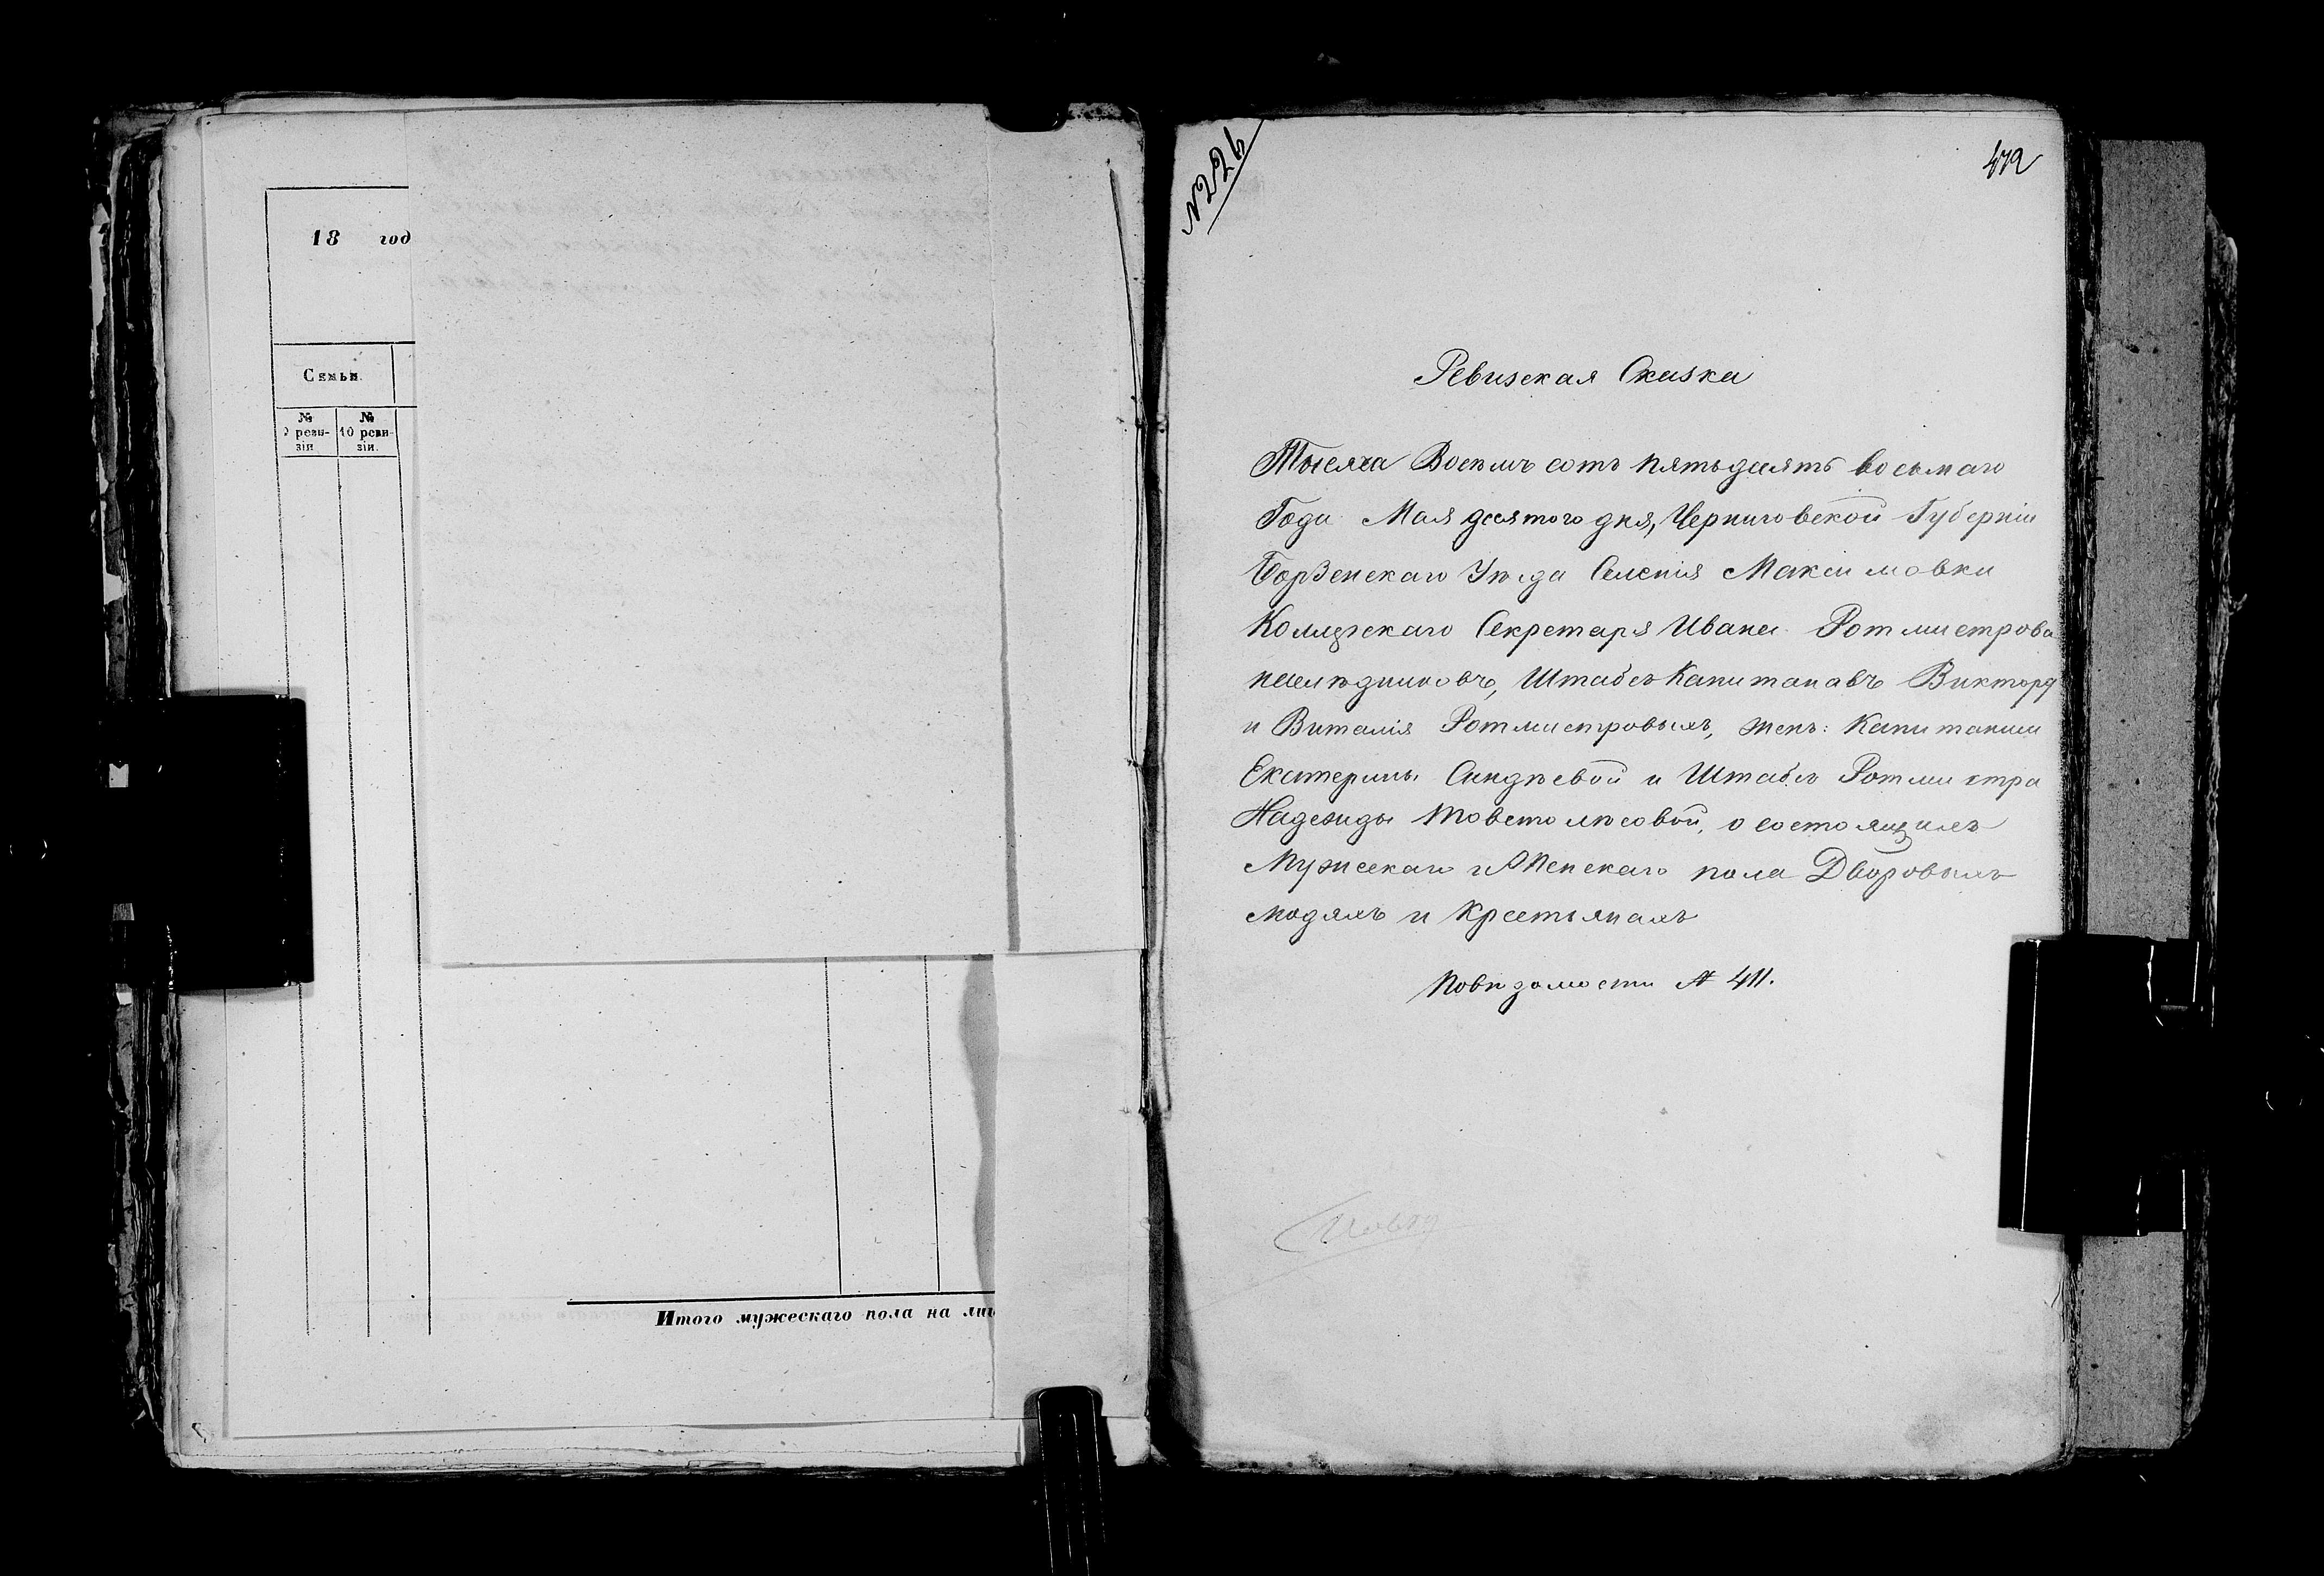 18 год
Семьи.
№ № 
9 реви- 10 реви-
зіи. зіи.
Итого мужескаго пола на лиц
№ 226
472
Ревизская Сказка
Тысяча Восемь сотъ пятьдесятъ восьмаго
Года Мая десятого дня, Черниговской Губерніи
Борзенскаго Уезда Селенія Максимовки
Коллежскаго Секретаря Ивана Ротмистрова
наследниковъ, Штабсъ Капитановъ Виктора
и Виталія Ротмистровыхъ, женъ: Капитанши
Екатерины Синдѣевой и Штабсъ Ротмистра
Надежды Товстолѣсовой, о состоящихъ
Мужескаго и Женскаго пола Дворовыхъ
людяхъ и Крестьянахъ
По вѣдомости № 411.